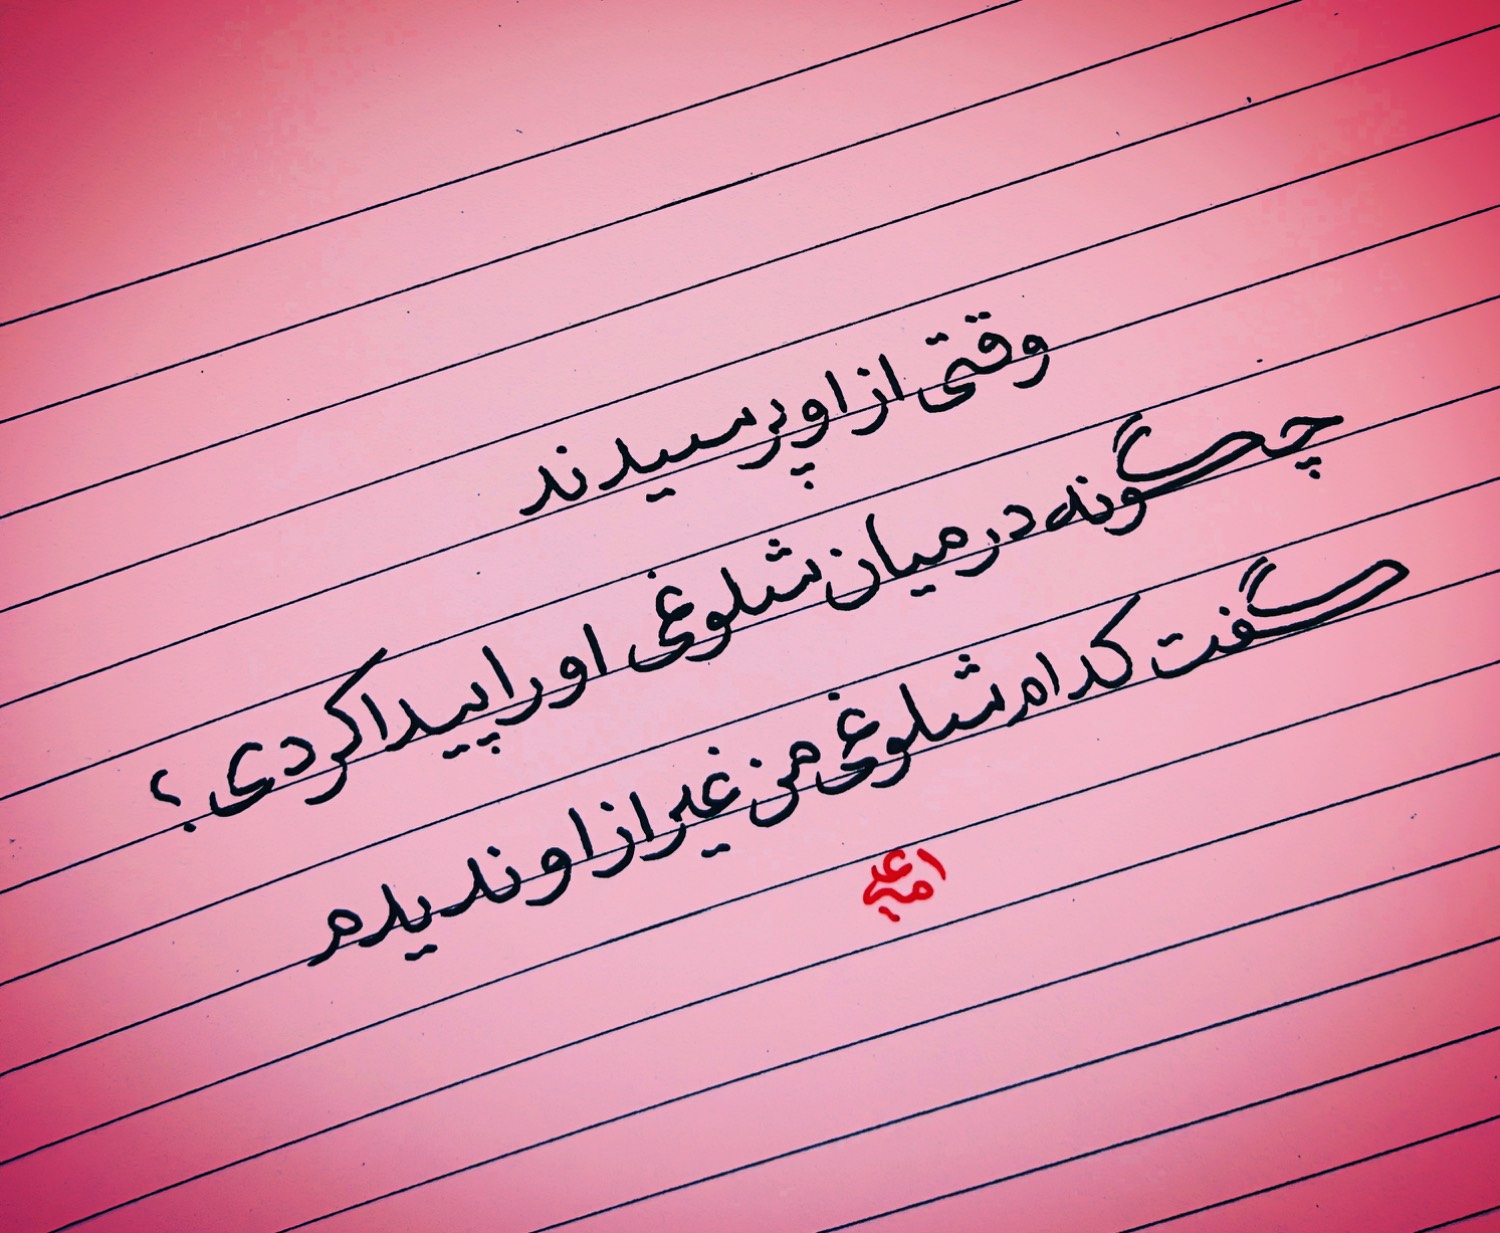 وقتی از او پرسیدند
چگونه در میان شلوغی او را پیدا کردی ؟
گفت کدام شلوغی من غیر از او ندیدم